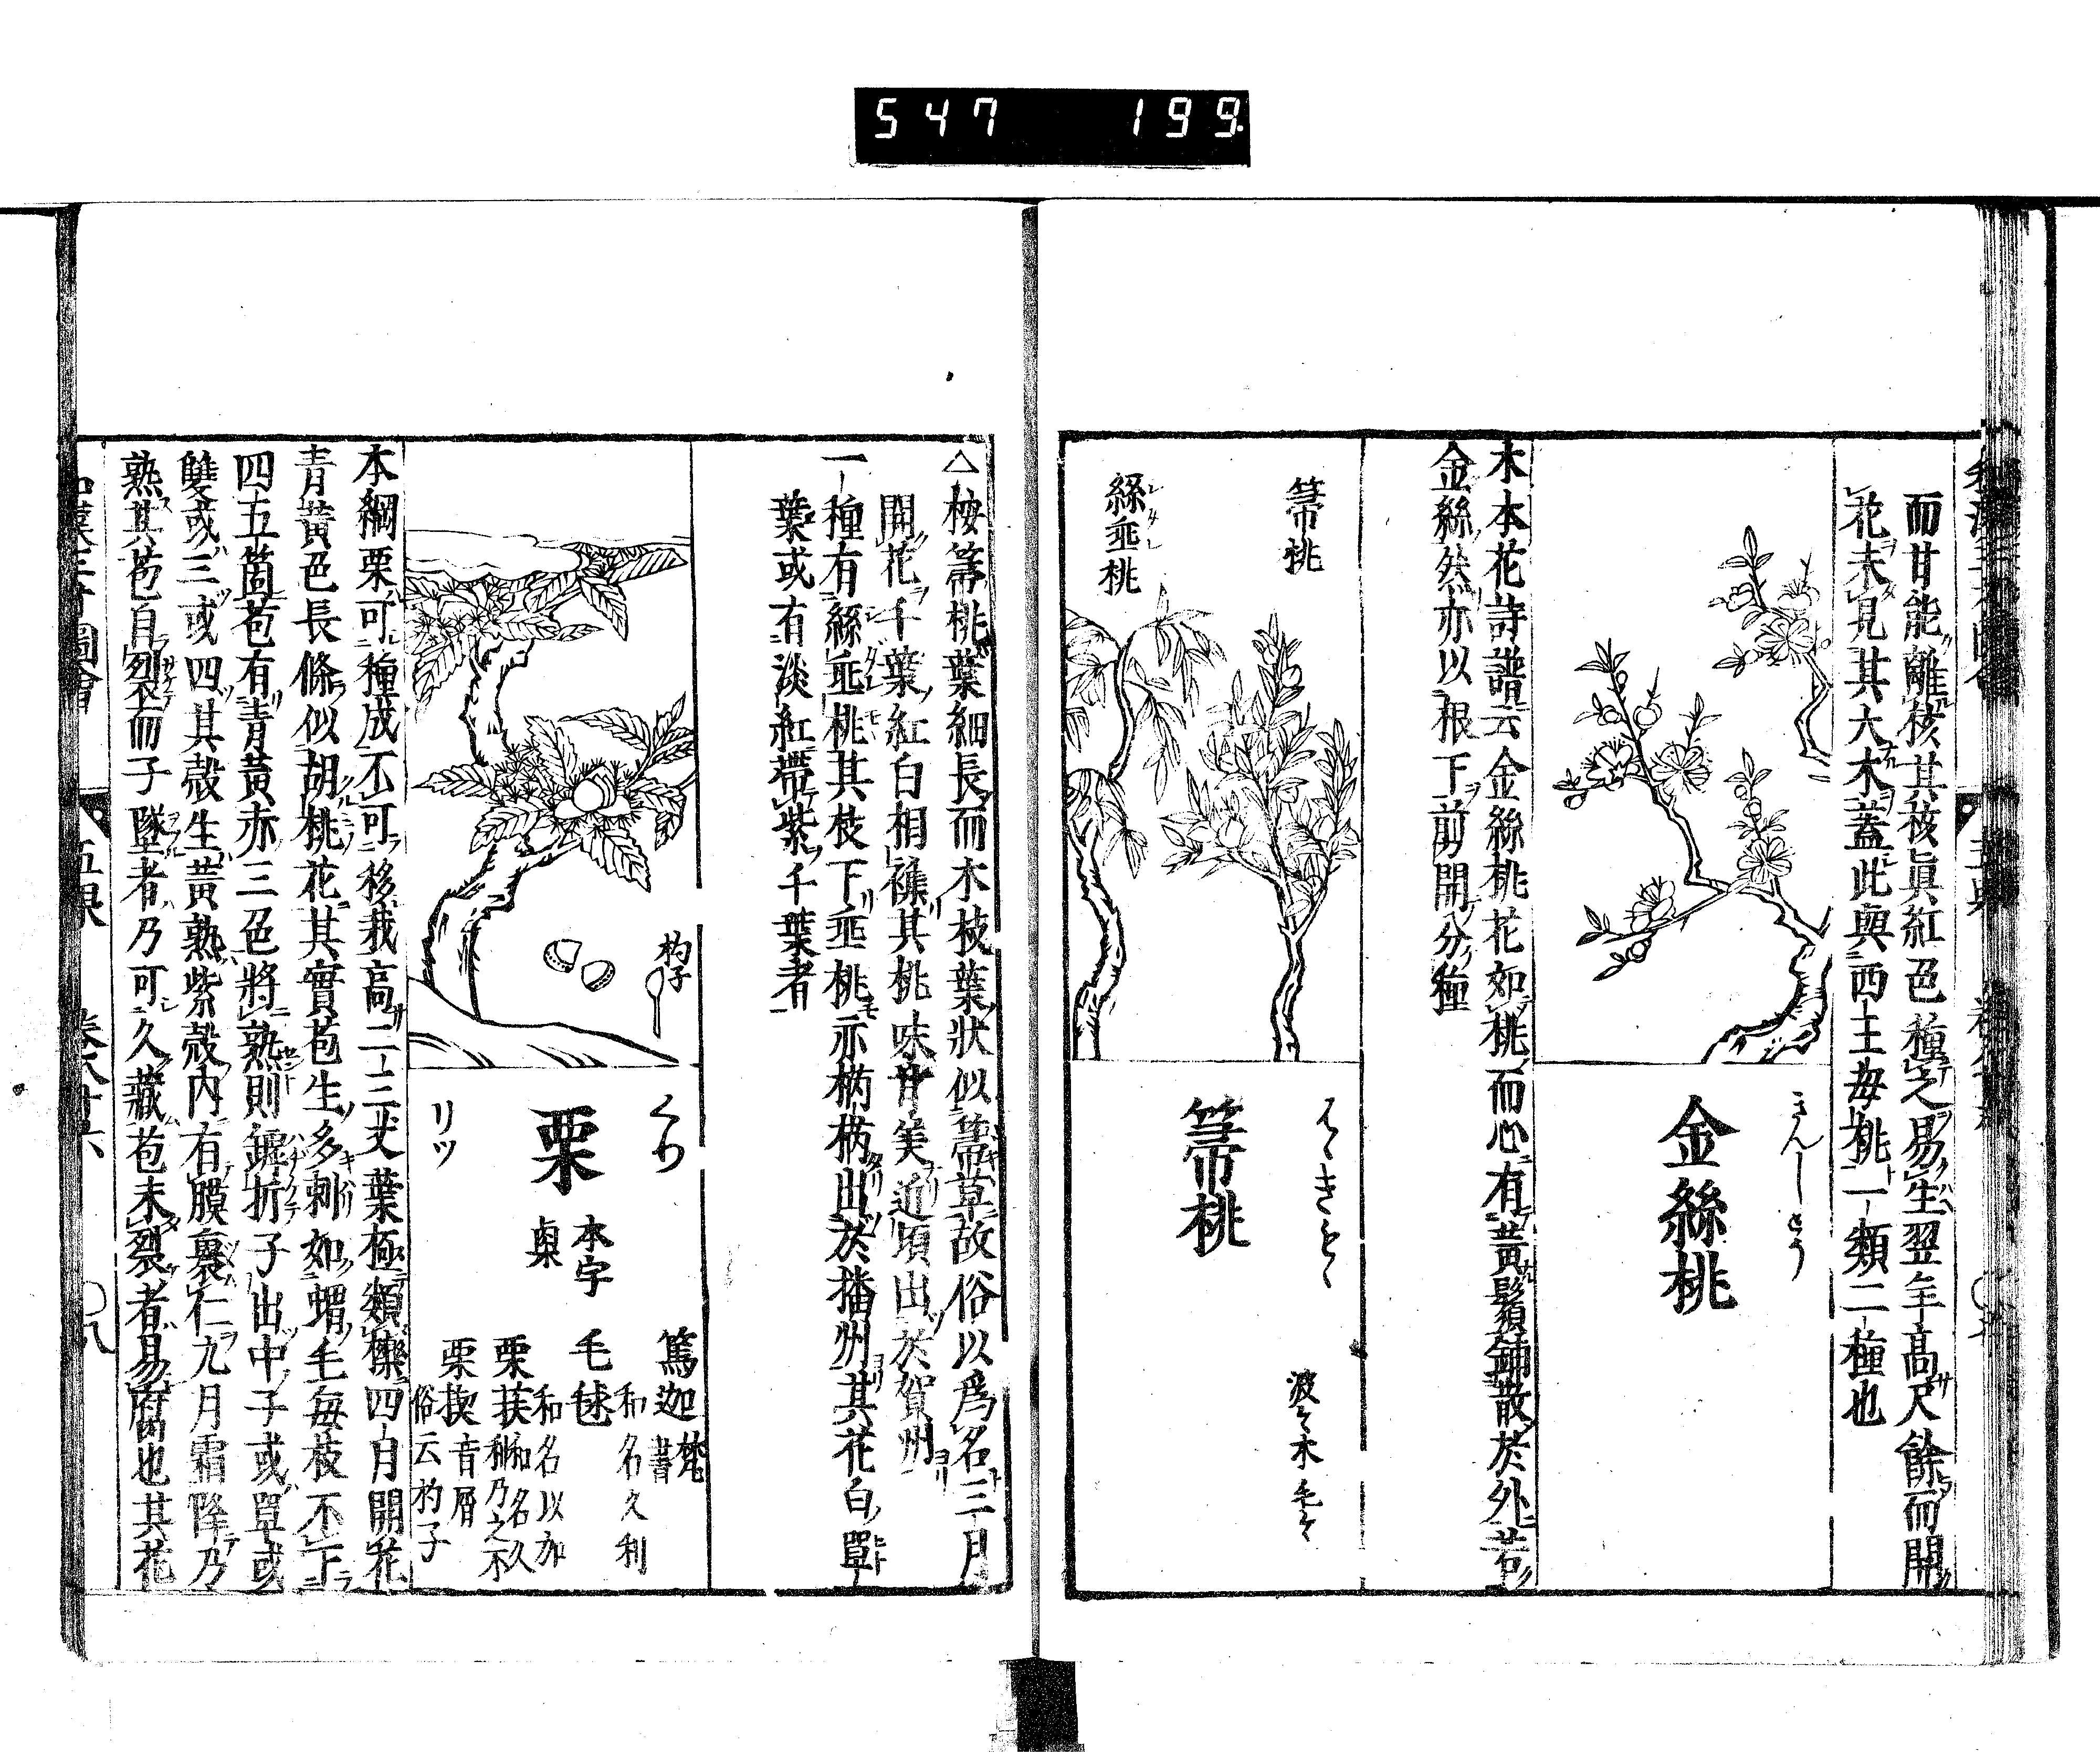 547 199
而甘能離核其核眞紅色種之易生翌年高尺餘而開
花未見其大木蓋此與西王母桃一類二種也
きんしとう
金絲桃
木本花詩譜云金絲桃花如桃而心有黄鬚鋪散於外若
金絲然亦以根下劈開分種
箒桃
絲垂桃
シダレ
はゝきもゝ
箒桃
波々木毛々
△按箒桃葉細長而木枝葉狀似箒草故俗以爲名三月
開花千葉紅白相襍其桃味甘美近頃出於賀州
一種有絲垂桃其枝下垂桃亦柄柄出於播州其花白單
葉或有淡紅帶紫千葉者
杓子
くり
栗
リツ
本字
㮚
篤迦 梵書
和名久利
毛毬
和名以加
栗荴 和名久利乃之不
栗楔 音屑
俗云杓子
本綱栗可種成不可移栽高二三丈葉極類櫟四月開花
青黄色長條似胡桃花其實苞生多刺如蝟毛每枝不下
四五箇苞有青黄赤三色將熟則罅拆子出中子或單或
雙或三或四其殻生黄熟紫殻内有膜裹仁九月霜降乃
熟其苞自裂而子墜者乃可久藏苞未裂者易腐也其花